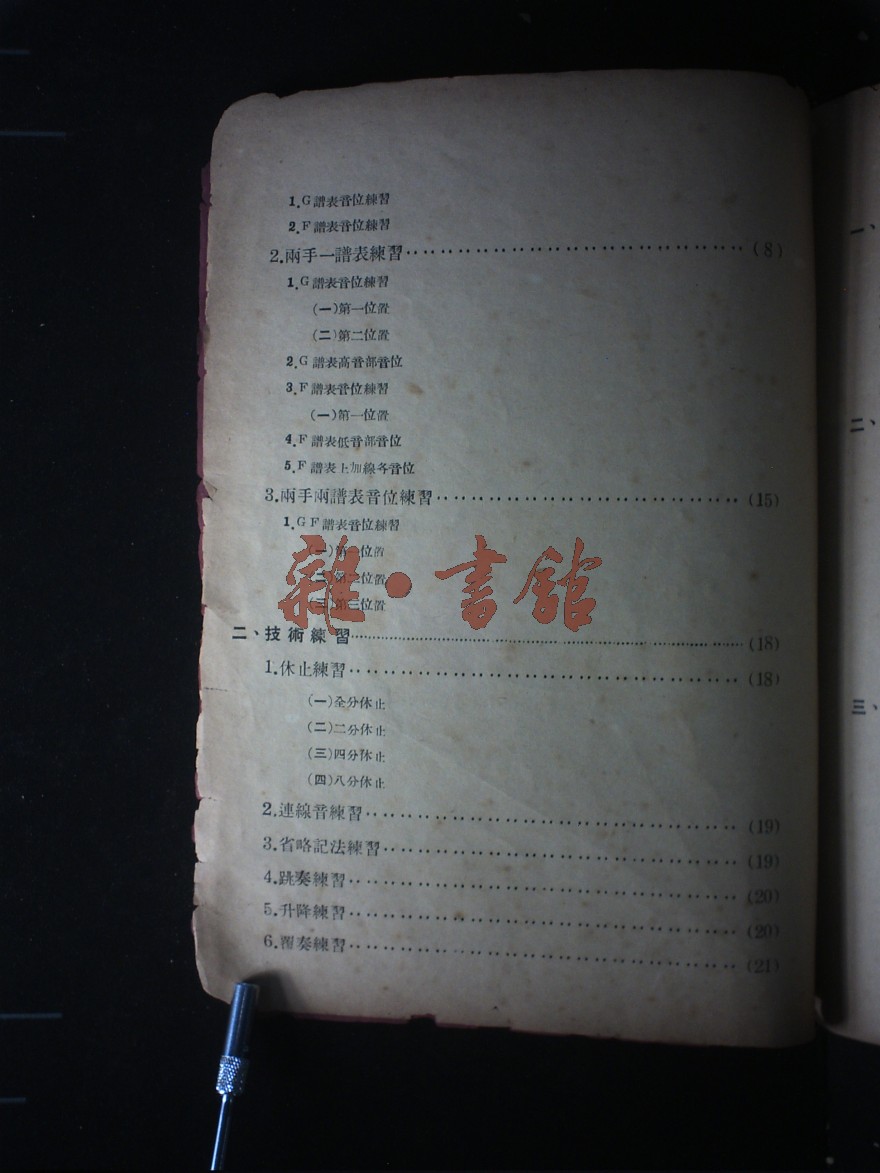 1.G譜表音位練習
2.F譜表音位練習
2.兩手一譜表練習‥‥‥‥‥‥‥‥‥‥‥‥‥‥‥‥‥‥(8)
1.G譜表音位練習
(一)第一位置
(二)第二位置
2.G譜表高音部音位
3.F譜表音位練習
(一)第一位置
4.F譜表低音部音位
5.F譜表上加線各音位
3.兩手兩譜表音位練習‥‥‥‥‥‥‥‥‥‥‥‥‥‥‥‥(15)
1.GF譜表音位練習
(一)第一位置
(二)第二位置
(三)第三位置
雜·書館
二、技術練習‥‥‥‥‥‥‥‥‥‥‥‥‥‥‥‥‥‥‥‥(18)
1.休止練習‥‥‥‥‥‥‥‥‥‥‥‥‥‥‥‥‥‥‥‥(18)
(一)全分休止
(二)二分休止
(三)四分休止
(四)八分休止
2.連線音練習‥‥‥‥‥‥‥‥‥‥‥‥‥‥‥‥‥‥‥(19)
3.省略記法練習‥‥‥‥‥‥‥‥‥‥‥‥‥‥‥‥‥‥(19)
4.跳奏練習‥‥‥‥‥‥‥‥‥‥‥‥‥‥‥‥‥‥‥‥(20)
5.升降練習‥‥‥‥‥‥‥‥‥‥‥‥‥‥‥‥‥‥‥‥(20)
6.覆奏練習‥‥‥‥‥‥‥‥‥‥‥‥‥‥‥‥‥‥‥‥(21)
一、
二、
三、